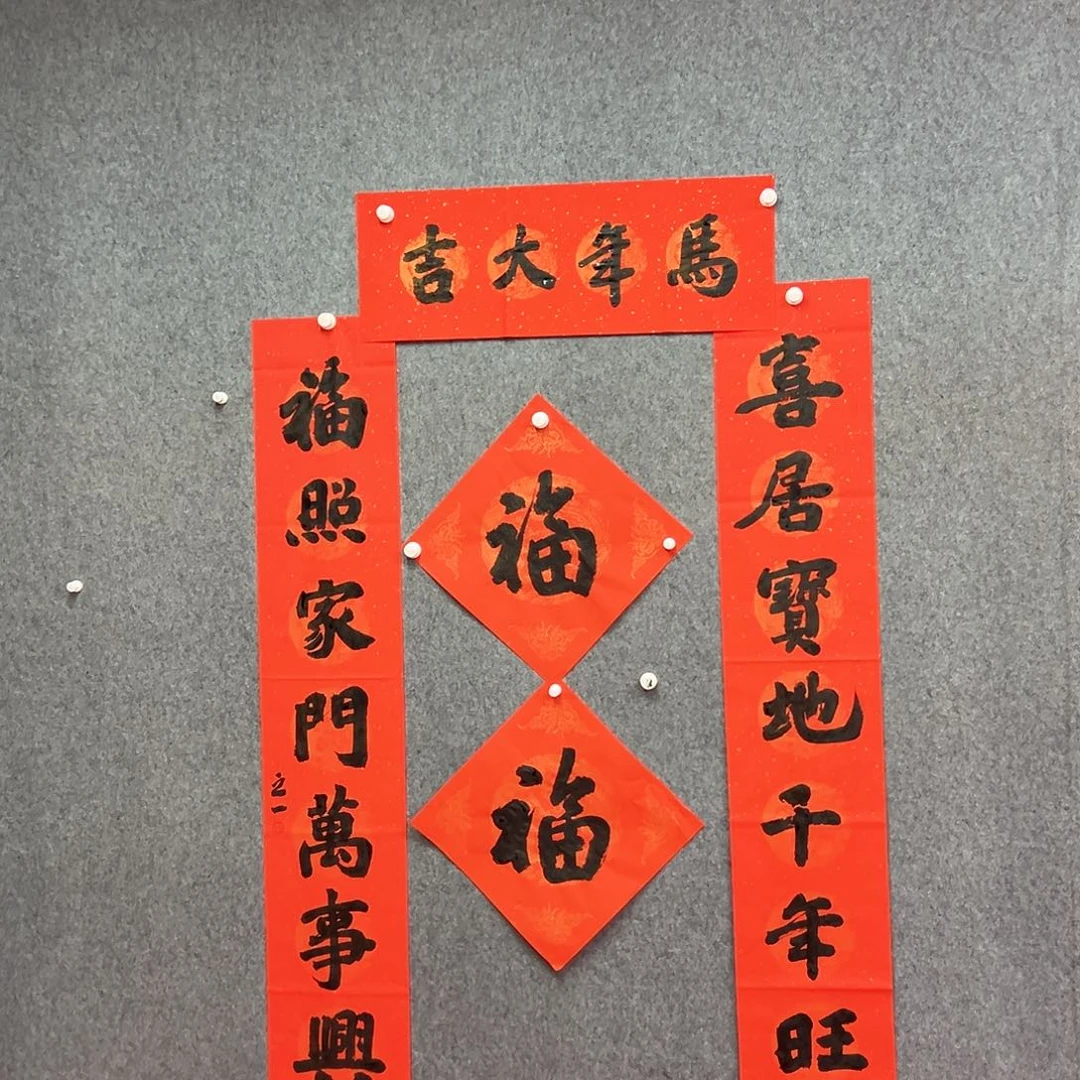 馬年大吉
喜居寶地千年旺
福照家門萬事興
之一
福
福